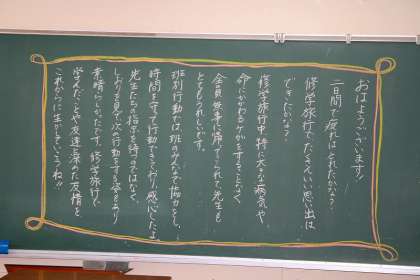 おはようございます！
二日間で疲れはとれたかな？
修学旅行でたくさんいい思い出は
できたかな？
修学旅行中、特に大きな病気や、
命にかかわるケガをすることなく
全員無事に帰ってこれて、先生も
とてもうれしいです。
班別行動では、班のみんなで協力をし、
時間を守って行動できており、感心したよ。
先生たちの指示を待つのではなく、
しおりを見て次の行動をする姿もあり
素晴らしかったです。修学旅行で
学んだことや友達と深めた友情を
これからに生かせるといいね!!